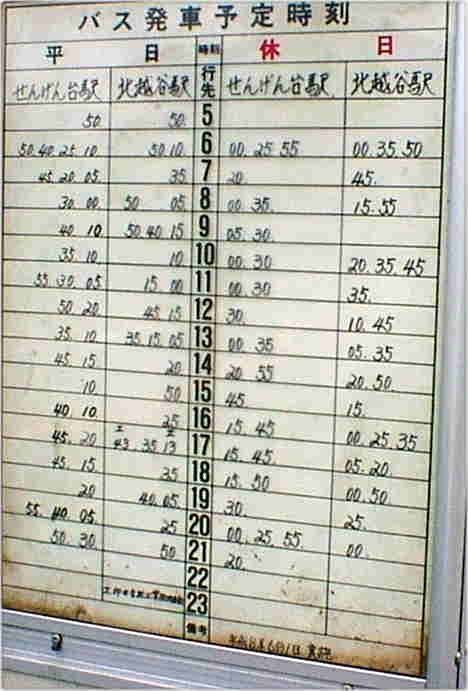 バス発車予定時刻
平 日 時刻 休 日
せんげん台駅 北越谷駅 行先 せんげん台駅 北越谷駅
50 50 5
50.40.25.10 50.10 6 00.25.55 00.35.50
45.20.05 35 7 20. 45.
30.00 50 05 8 00.35. 15.55
40 10 50 40 15 9 05.30.
35.10 10 10 00.30 20.35.45
55.30.05 15 00 11 00.30 35.
50.20 45.15 12 30. 10.45
35.10 35.15.05 13 00 35 05.35
45.15 20 14 20 55 20.50.
10 50 15 45 15.
40 10 25 16 15.45 00.25.35
45.20 43.35 13 17 15.45. 05.20.
45.15. 35 18 15.50 00.50
20 40.05 19 30 25.
55.40.05 25 20 00.25.55 00.
50.30 50 21 20
22
23
備考